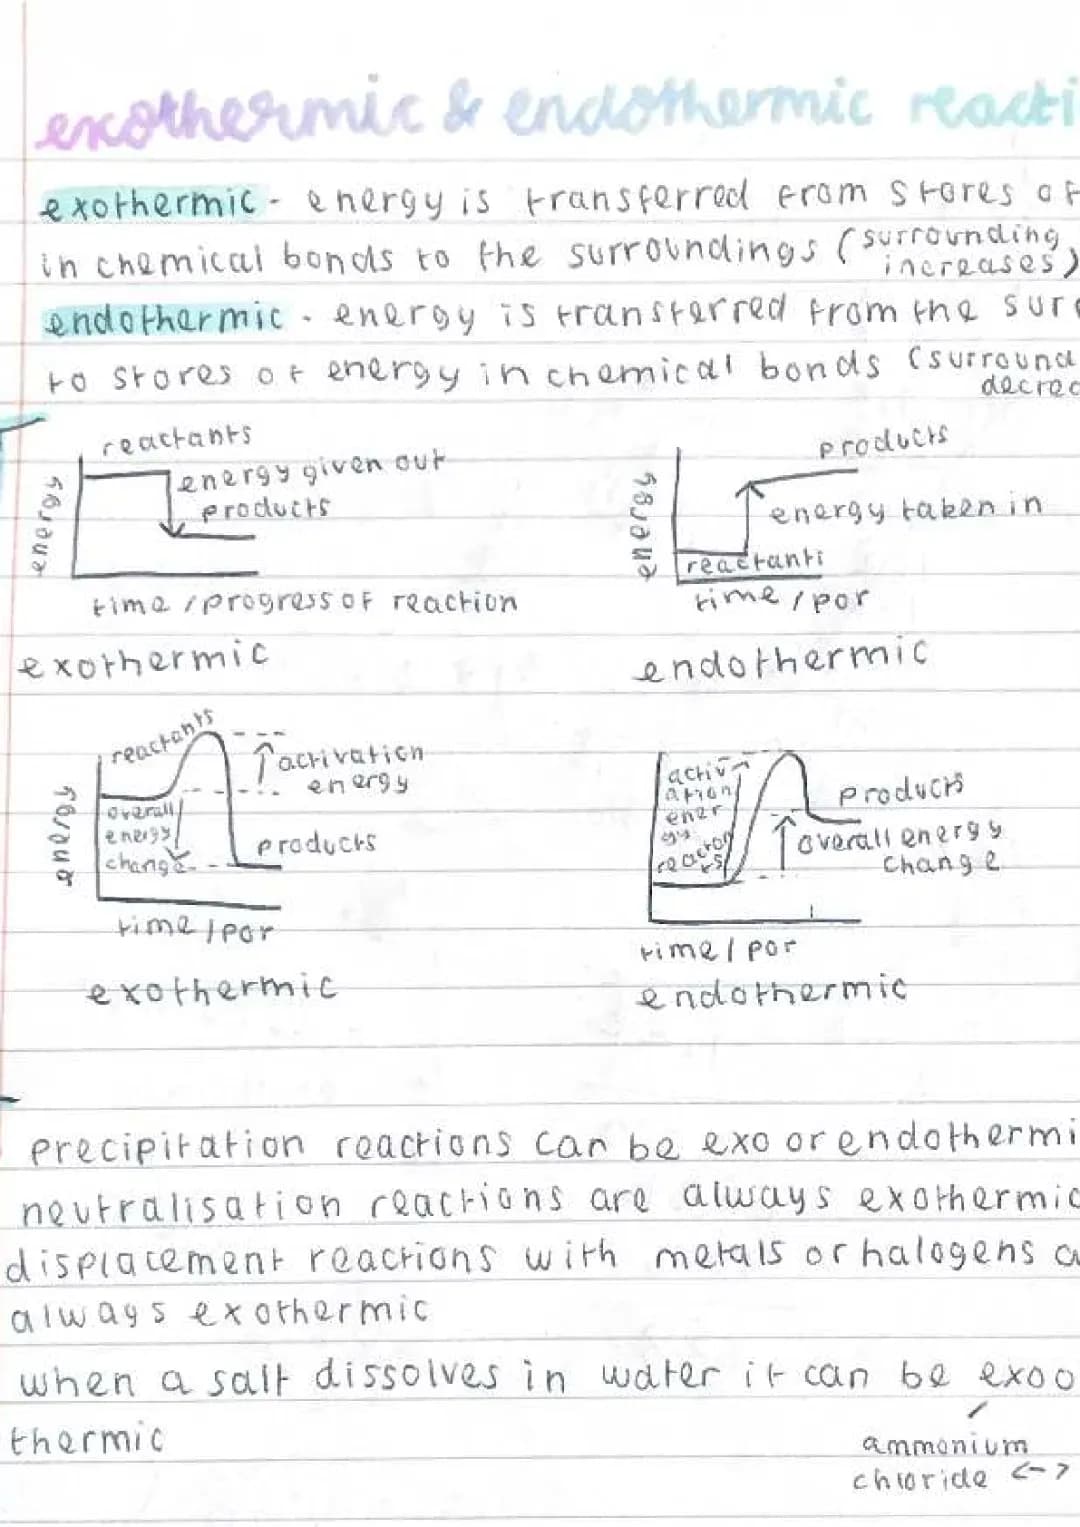 exothermic & endothermic reacti
exothermic - energy is transferred from stores of
in chemical bonds to the surroundings (surrounding
increases)
endothermic - energy is transferred from the surr
to stores of energy in chemical bonds (surround
decrea
reactants
energy given out
products
energy
time / progress of reaction
exothermic
products
energy taken in
reactants
energy
time / por
endothermic
reactants
activation
energy
overall
energy
change
products
energy
time / por
exothermic
activ
ation
ener
gy
reactan
ts
products
overall energy
change
time / por
endothermic
precipitation reactions can be exo or endothermi
neutralisation reactions are always exothermic
displacement reactions with metals or halogens a
always exothermic
when a salt dissolves in water it can be exo o
thermic
ammonium
chloride <->